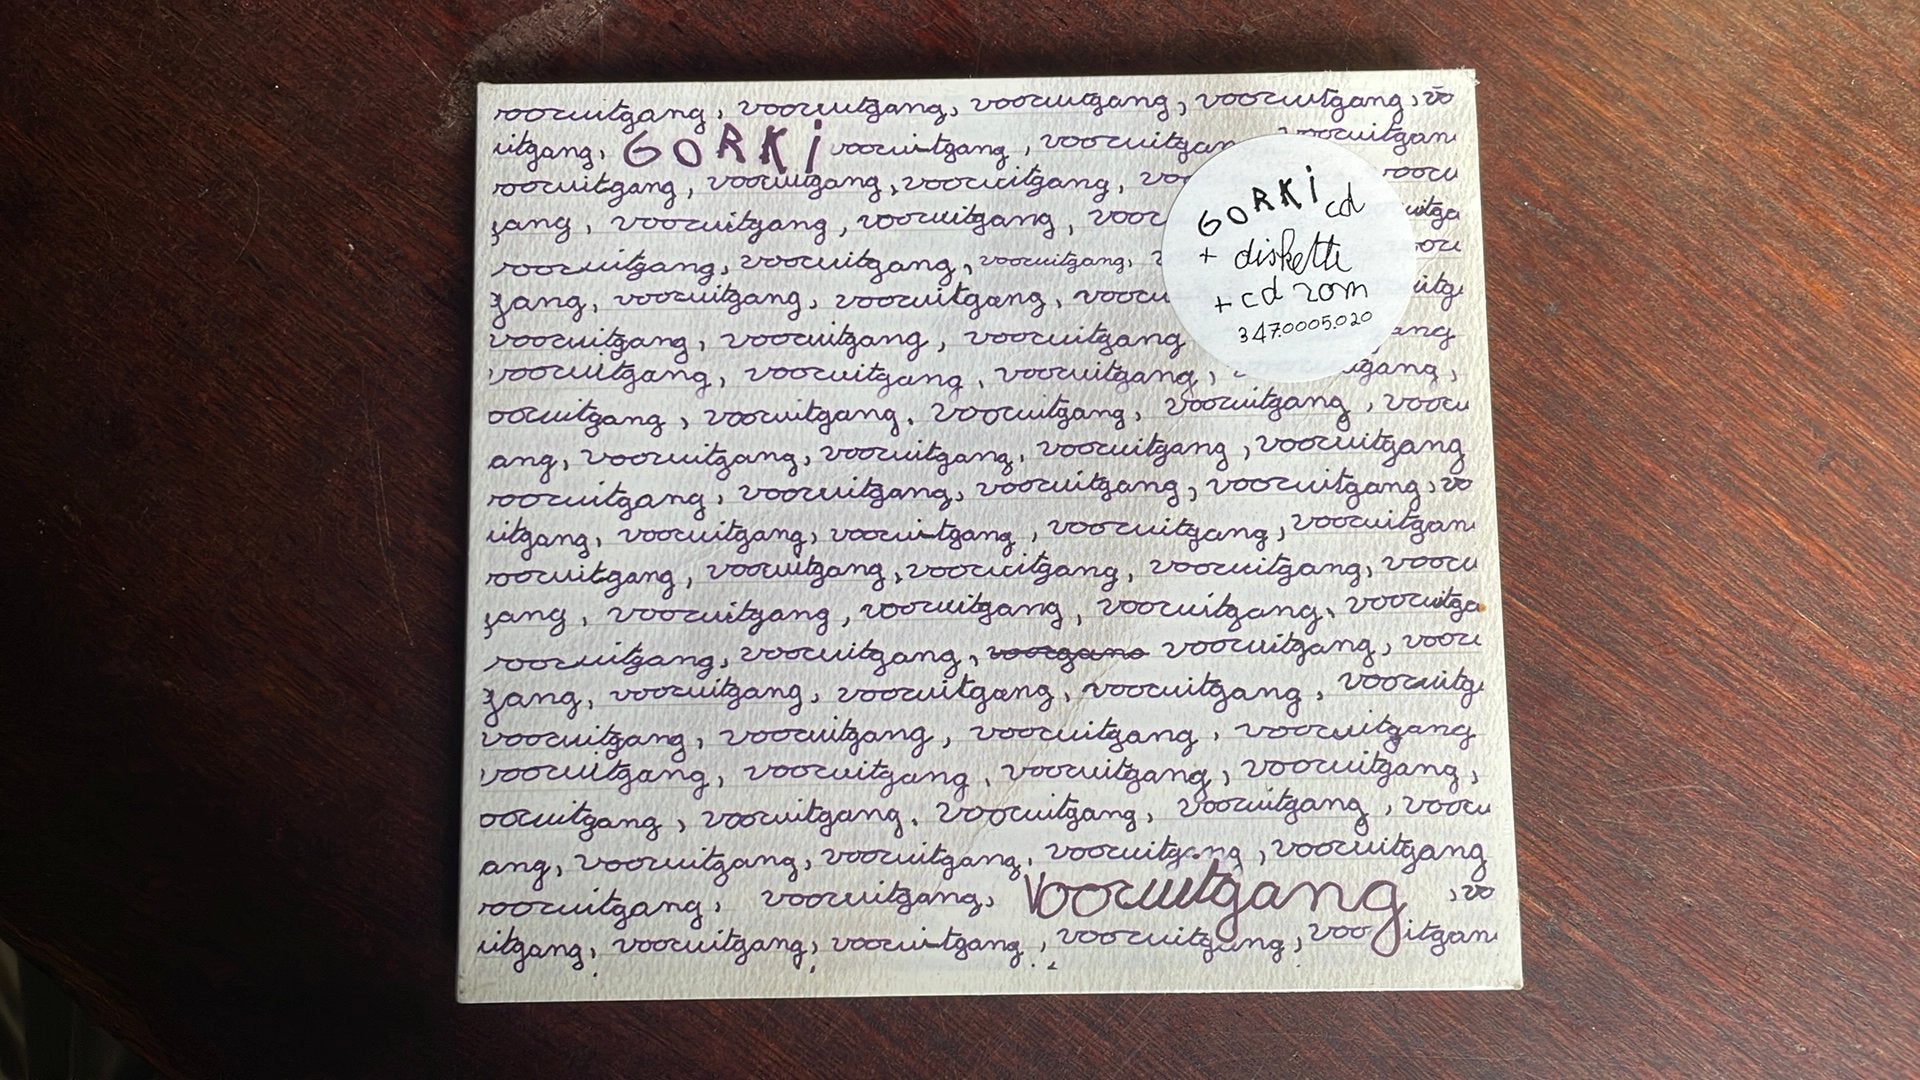 vooruitgang, vooruitgang, vooruitgang, vooruitgang, vo
uitgang, GORKI vooruitgang, vooruitgang vooruitgan
vooruitgang, vooruitgang, vooruitgang, vo vooru
gang, vooruitgang, vooruitgang, voor uitga
vooruitgang, vooruitgang, vooruitgang, voor
gang, vooruitgang, vooruitgang, vooru uitg
vooruitgang, vooruitgang, vooruitgang ang
vooruitgang, vooruitgang, vooruitgang, gang,
ooruitgang, vooruitgang, vooruitgang, vooruitgang, vooru
ang, vooruitgang, vooruitgang, vooruitgang, vooruitgang
vooruitgang, vooruitgang, vooruitgang, vooruitgang, vo
uitgang, vooruitgang, vooruitgang, vooruitgang, vooruitgan
vooruitgang, vooruitgang, vooruitgang, vooruitgang, vooru
gang, vooruitgang, vooruitgang, vooruitgang, vooruitga
vooruitgang, vooruitgang, vooruitgang, voor
gang, vooruitgang, vooruitgang, vooruitgang, vooruitg
vooruitgang, vooruitgang, vooruitgang, vooruitgang
vooruitgang, vooruitgang, vooruitgang, vooruitgang,
ooruitgang, vooruitgang, vooruitgang, vooruitgang, vooru
ang, vooruitgang, vooruitgang, vooruitgang, vooruitgang
vooruitgang, vooruitgang, Vooruitgang, vo
uitgang, vooruitgang, vooruitgang, vooruitgang, voo itgan
GORKI cd
+ diskette
+ cd rom
347.0005.020